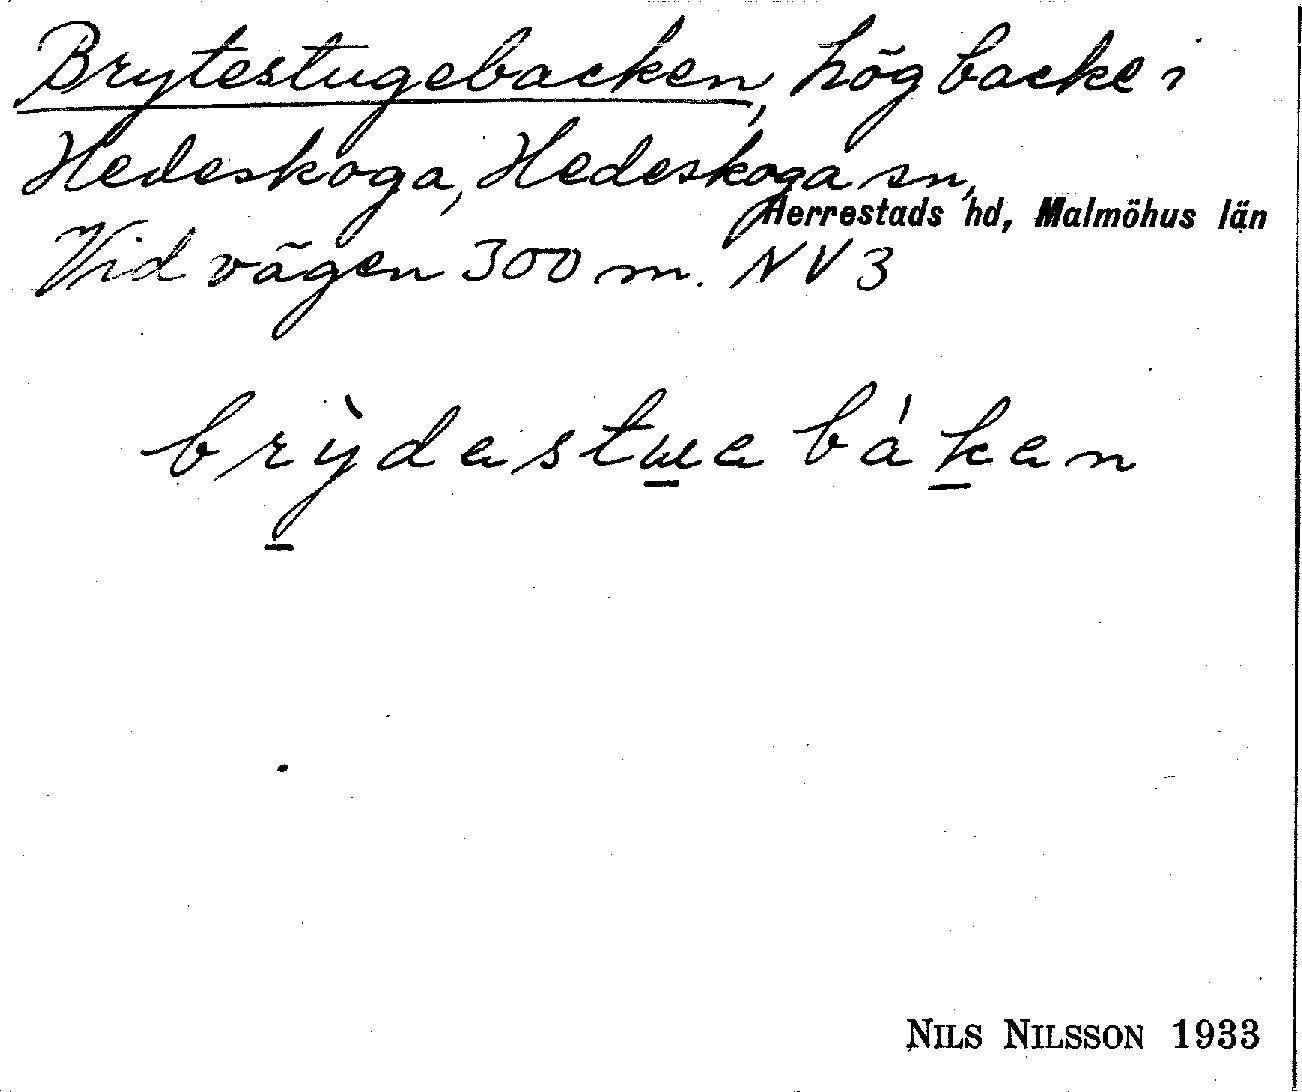 Brytestugebacken, hög backe i
Hedeskoga, Hedeskoga sn,
Herrestads hd, Malmöhus län
Vid vägen 300 m. NV 3
brỳdastwa bákan
NILS NILSSON 1933